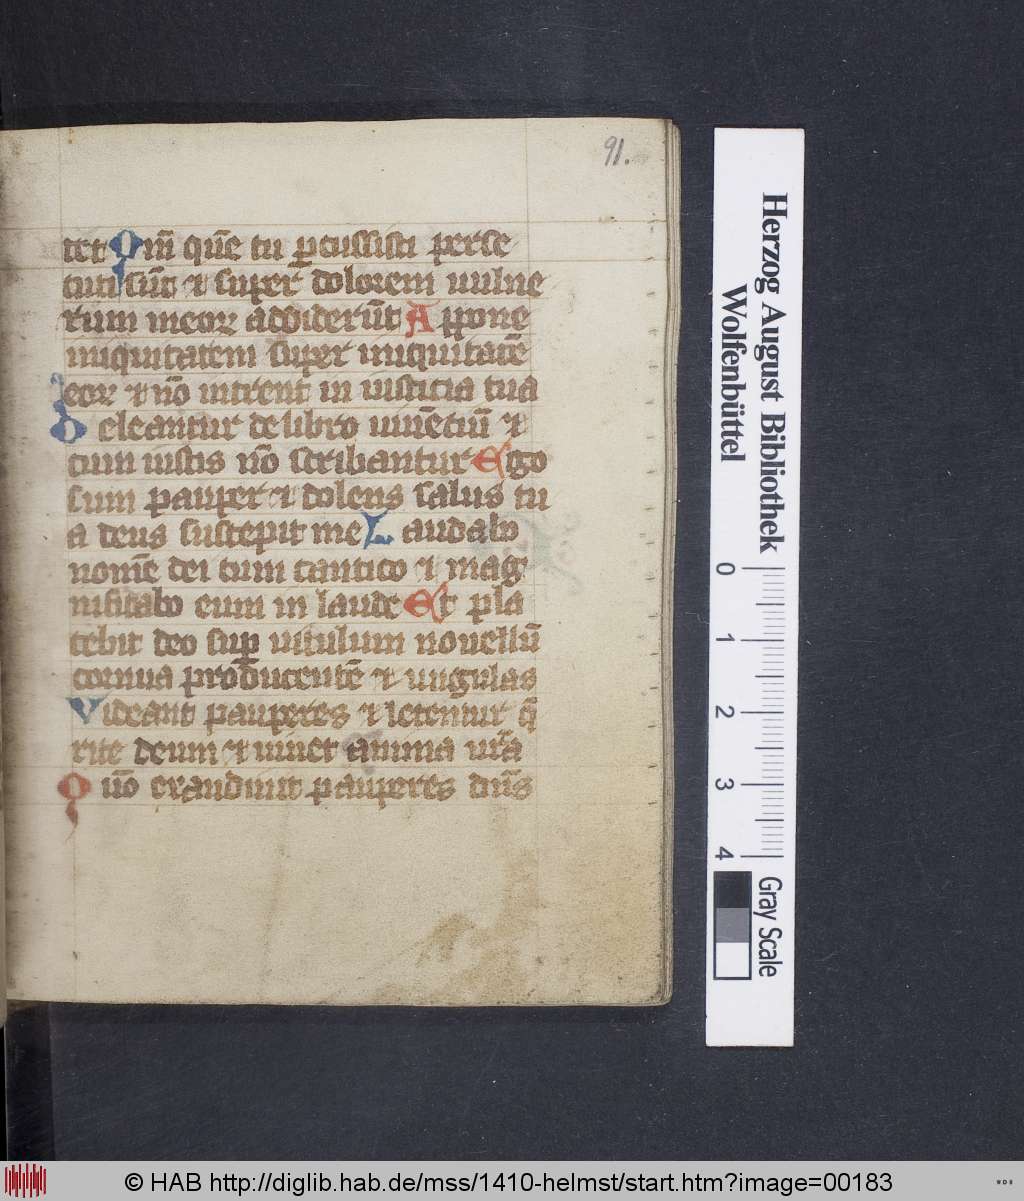 91.
tet Qm̄ quē tu p̱cussisti perse
cuti sūt ⁊ super dolorem uulne
rum meoꝝ addiderūt Appone
iniquitatem super iniquitatē
eoꝝ ⁊ nō intrent in iusticia tua
Deleantur de libro uiuētiū ⁊
cum iustis nō scribantur Ego
sum pauper ⁊ dolens salus tu
a deus suscepit me Laudabo
nomē dei cum cantico ⁊ mag
nificabo eum in laude Et pla
cebit deo sup̱ uitulum nouellū
cornua producentē ⁊ ungulas
Videant pauperes ⁊ letentur q̄
rite deum ⁊ uiuet anima ur̄a
Quō exaudiuit pauperes dn̄s
Herzog August Bibliothek
Wolfenbüttel
0 1 2 3 4
Gray Scale
© HAB http://diglib.hab.de/mss/1410-helmst/start.htm?image=00183